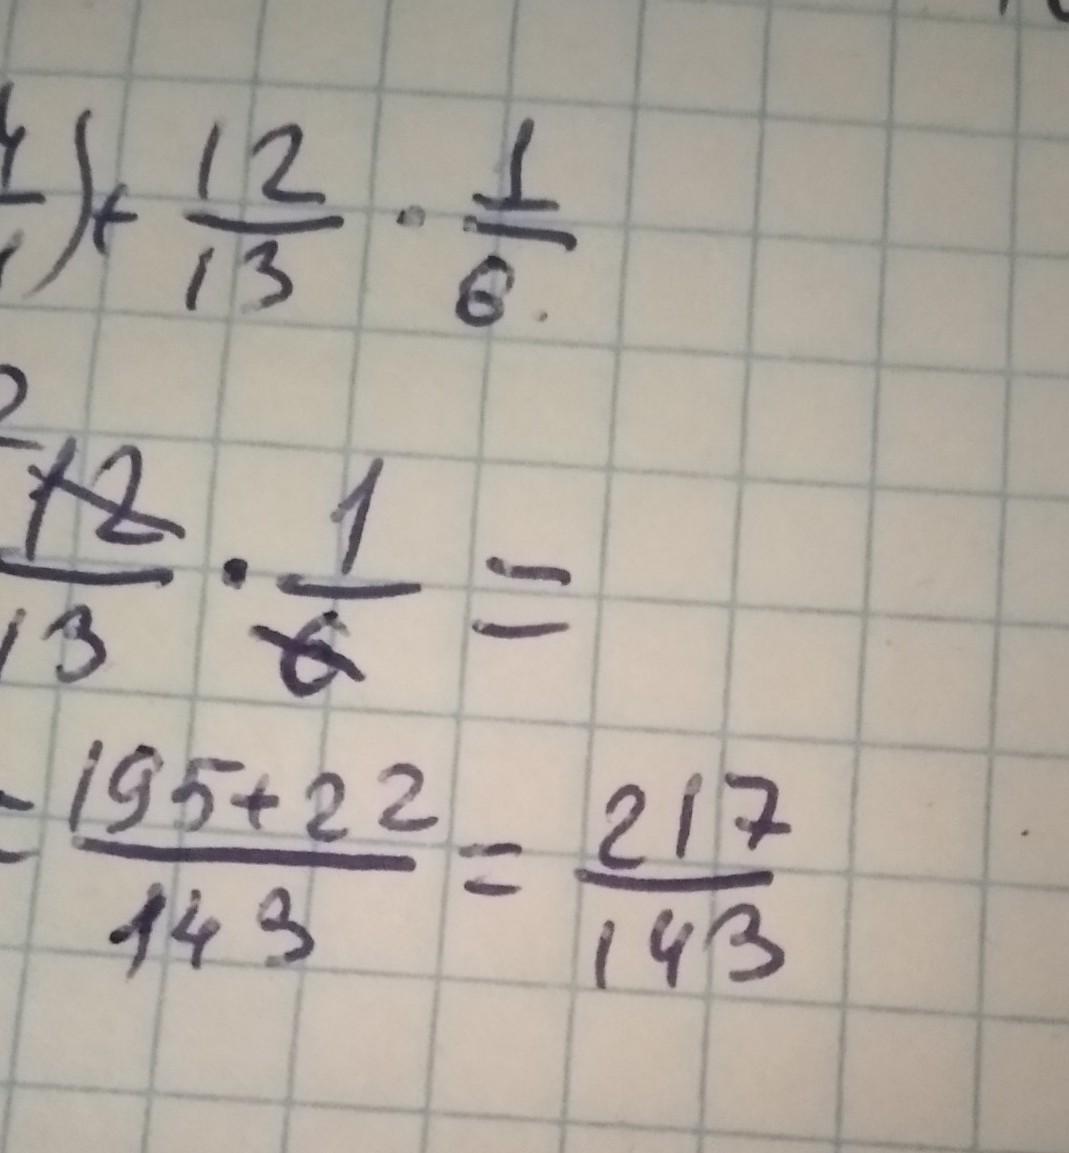 ) + 12/13 · 1/6.
2
12/13 · 1/6 =
= 195+22/143 = 217/143